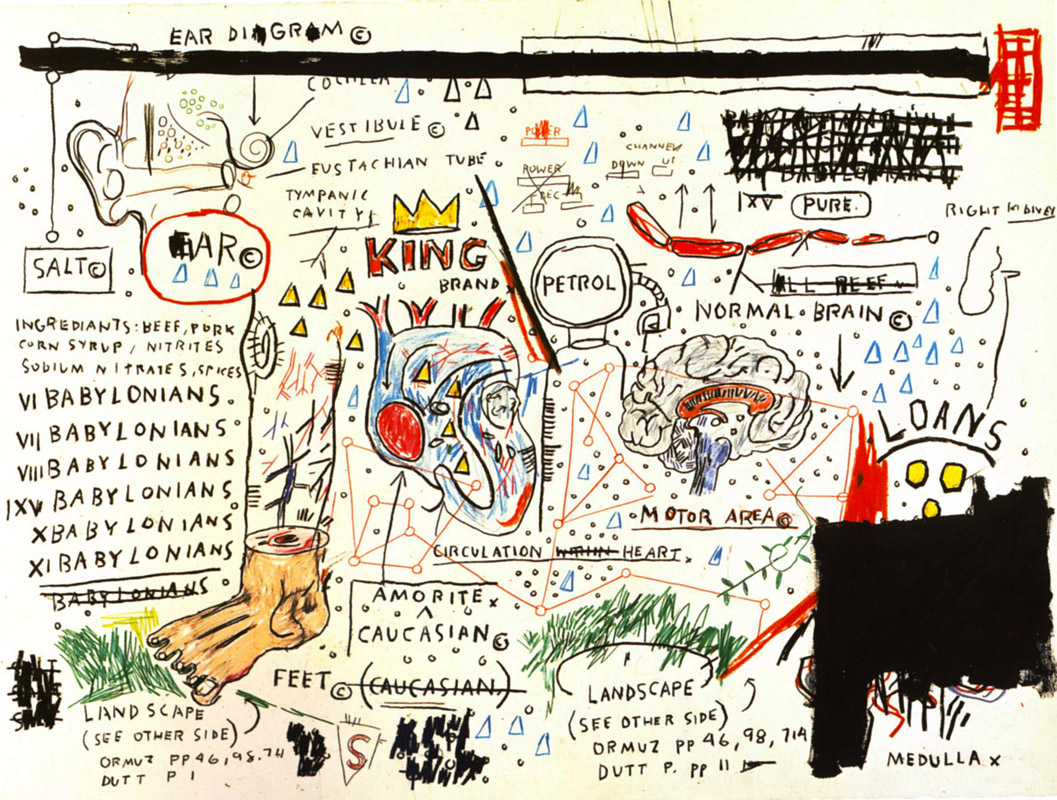 EAR DIAGRAM ©
COCHLEA
VESTIBULE ©
EUSTACHIAN TUBE
TYMPANIC
CAVITY
POWER
CHANNEL
DOWN UP
POWER
REC
IXV PURE.
RIGHT KIDNEY
SALT ©
EAR ©
KING
BRAND x
PETROL
ALL BEEF
NORMAL BRAIN ©
INGREDIANTS: BEEF, PORK
CORN SYRUP / NITRITES
SODIUM NITRATES, SPICES
VI BABYLONIANS.
VII BABYLONIANS
VIII BABYLONIANS
IXV BABYLONIANS
X BABYLONIANS
XI BABYLONIANS
BABYLONIANS
LOANS
MOTOR AREA ©
CIRCULATION WITHIN HEART x
AMORITE x
^
CAUCASIAN ©
FEET © (CAUCASIAN.)
LANDSCAPE
(SEE OTHER SIDE)
ORMUZ PP 46, 98. 74
DUTT P 1
S
LANDSCAPE
(SEE OTHER SIDE)
ORMUZ PP 46, 98, 714
DUTT P. PP 11
MEDULLA x